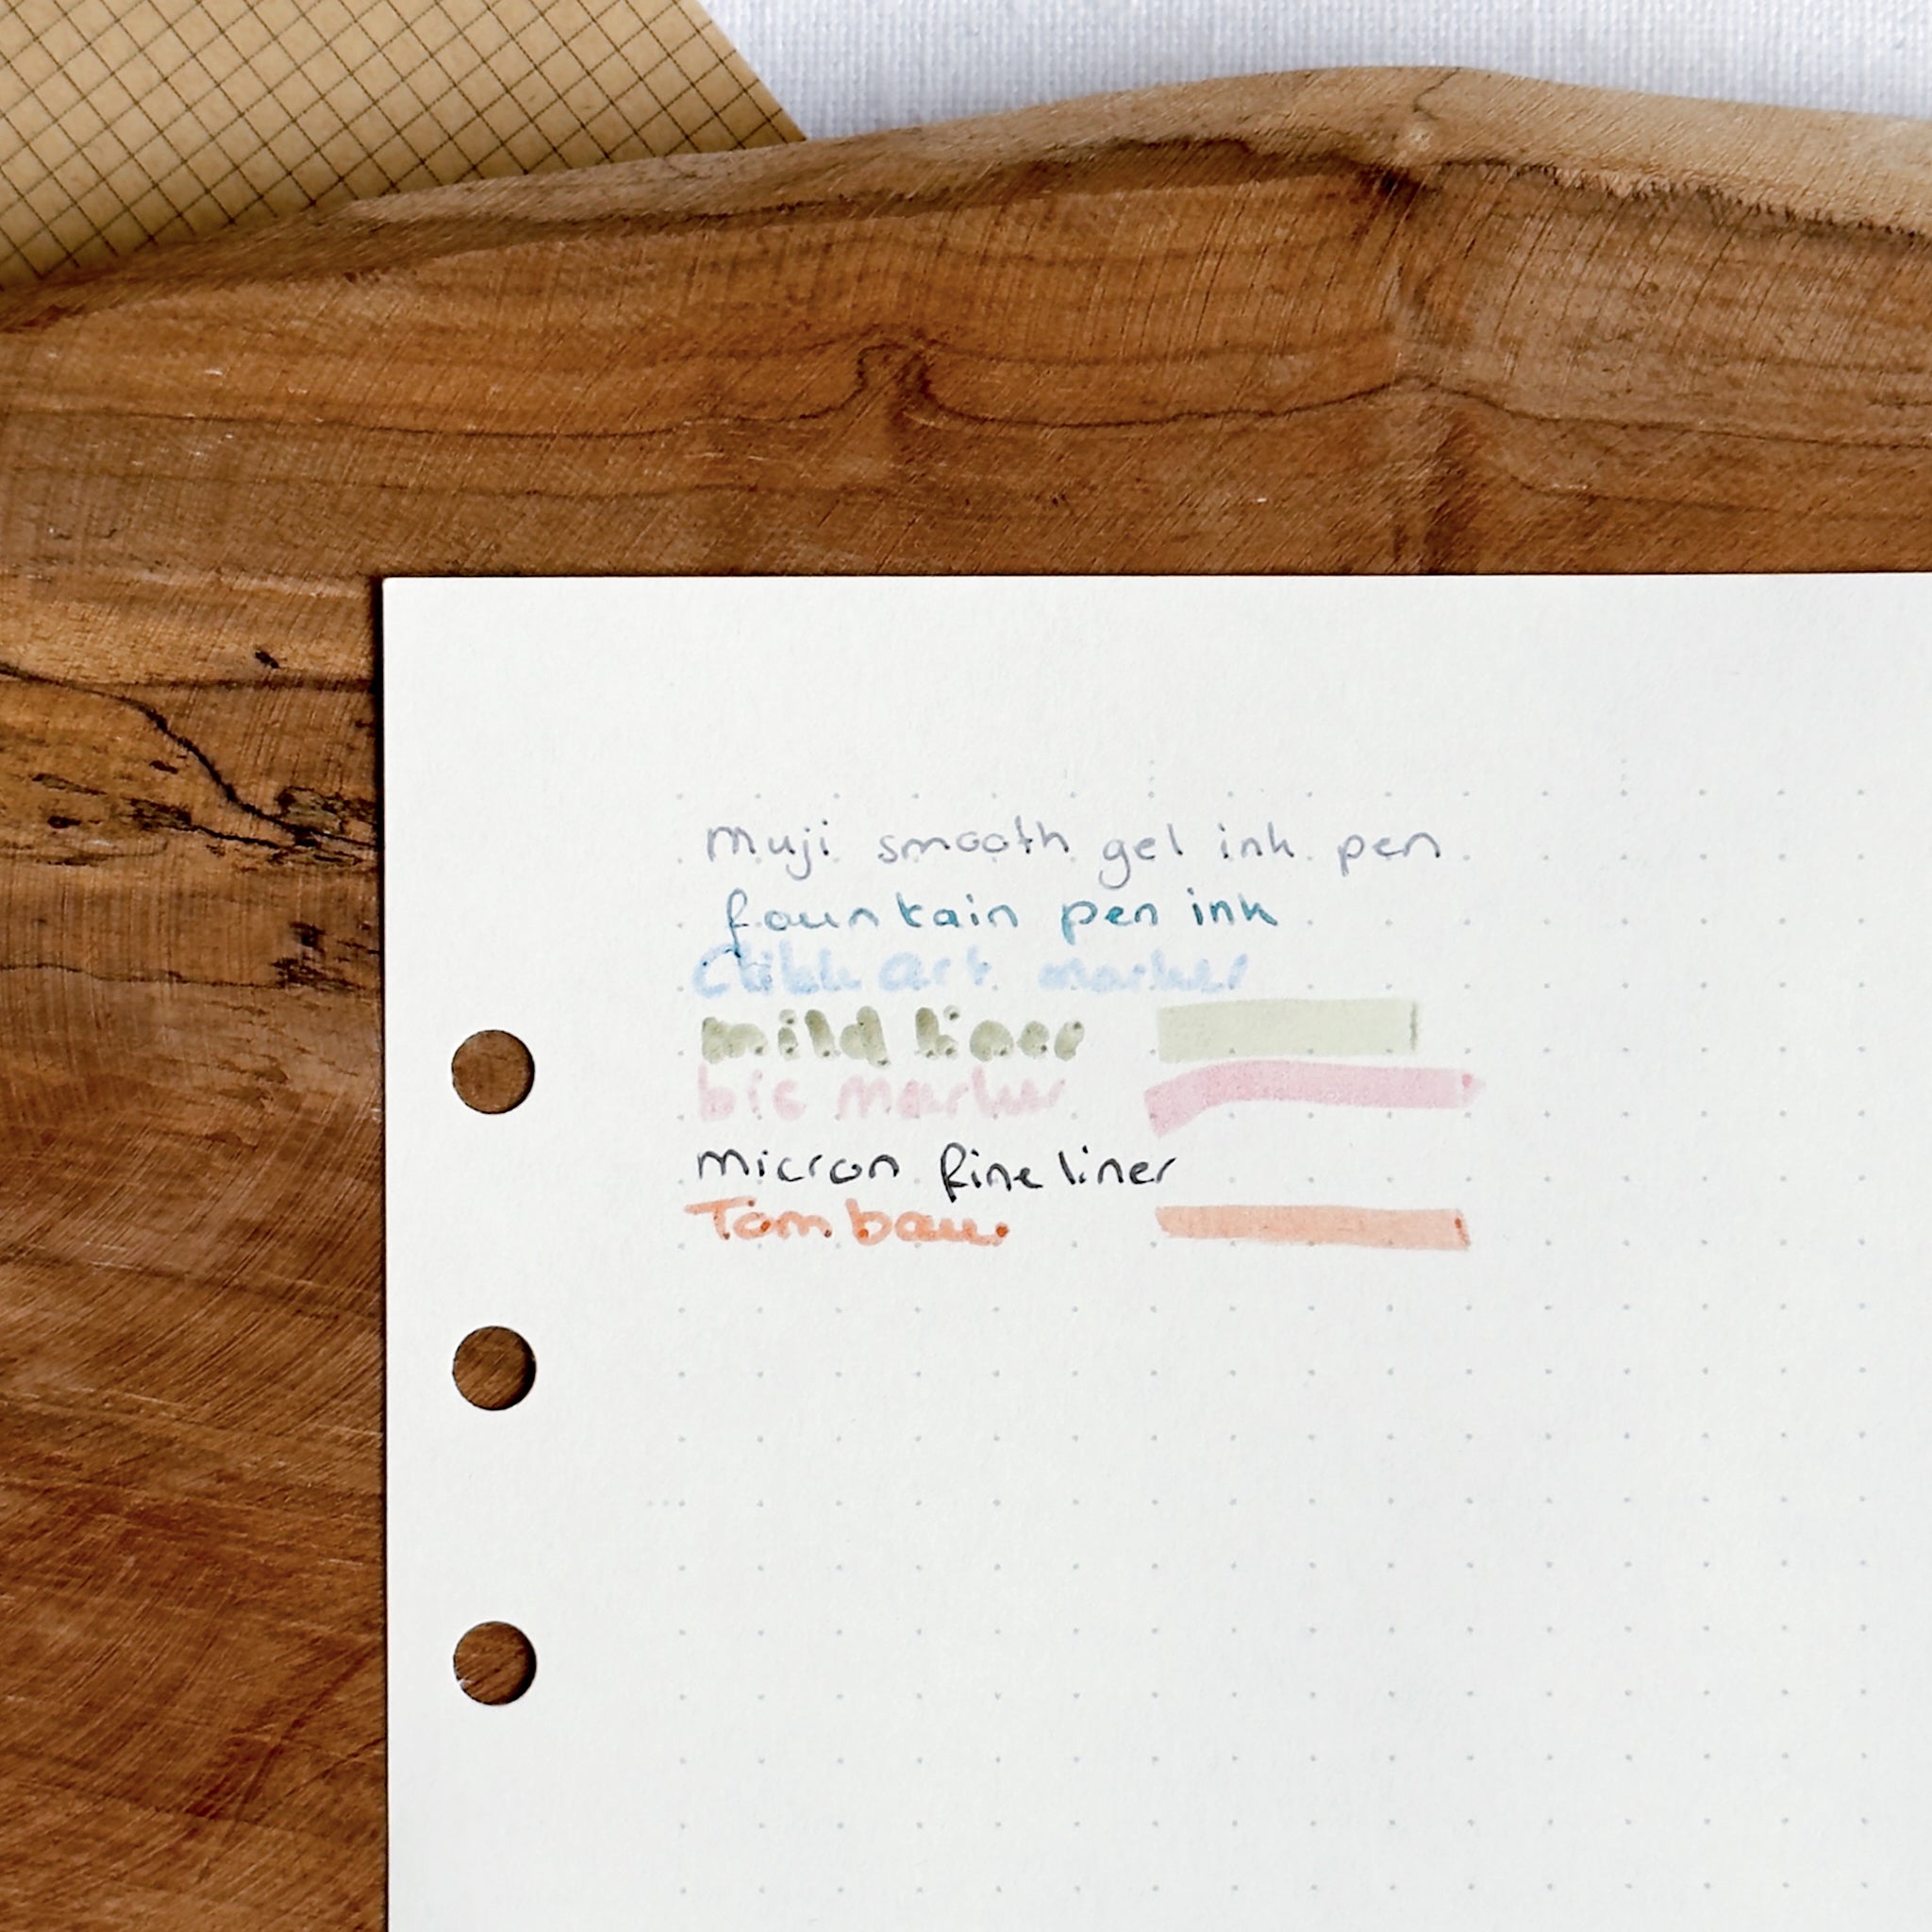 muji smooth gel ink pen
fountain pen ink
Clikk art marker
mild liner
bic marker
micron fine liner
Tombow